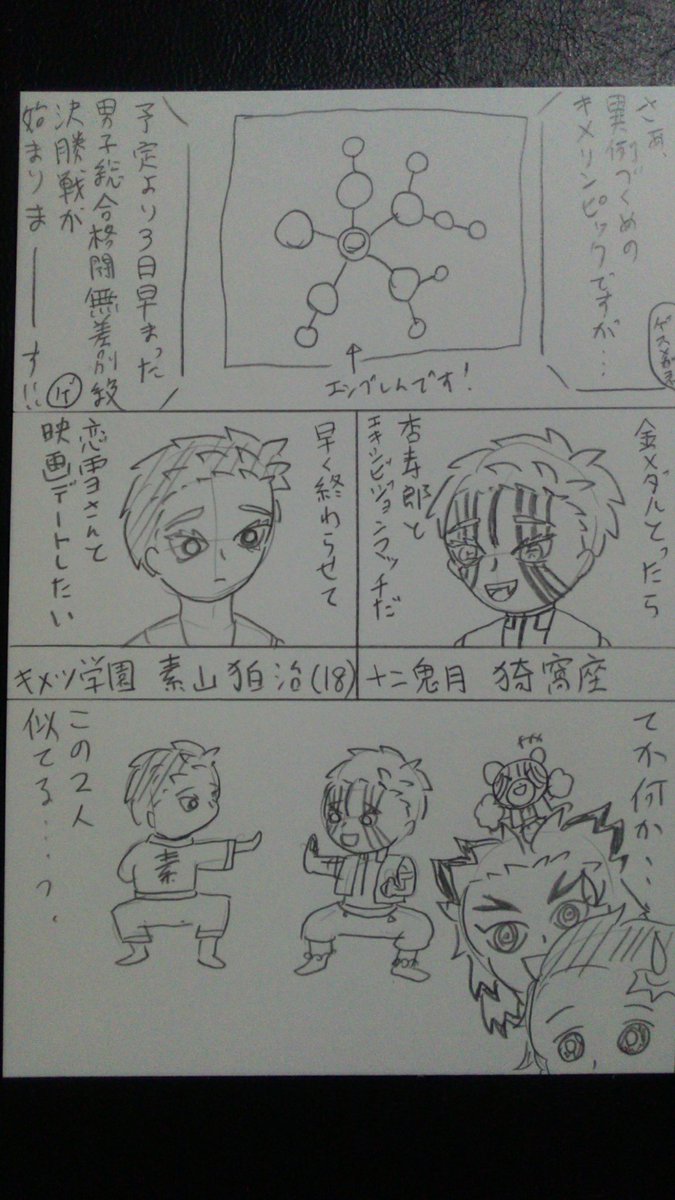 さぁ、
異例づくめの
キメリンピックですが…
ゲスメガネ
エンブレムです!
予定より3日早まった
男子総合格闘無差別級
決勝戦が
始まりまーーーす!!
ゲ
金メダルとったら
杏寿郎と
エキシビジョンマッチだ
早く終わらせて
恋雪さんと
映画デートしたい
十二鬼月 猗窩座
キメツ学園 素山狛治(18)
てか何か…
この2人
似てる…?
素